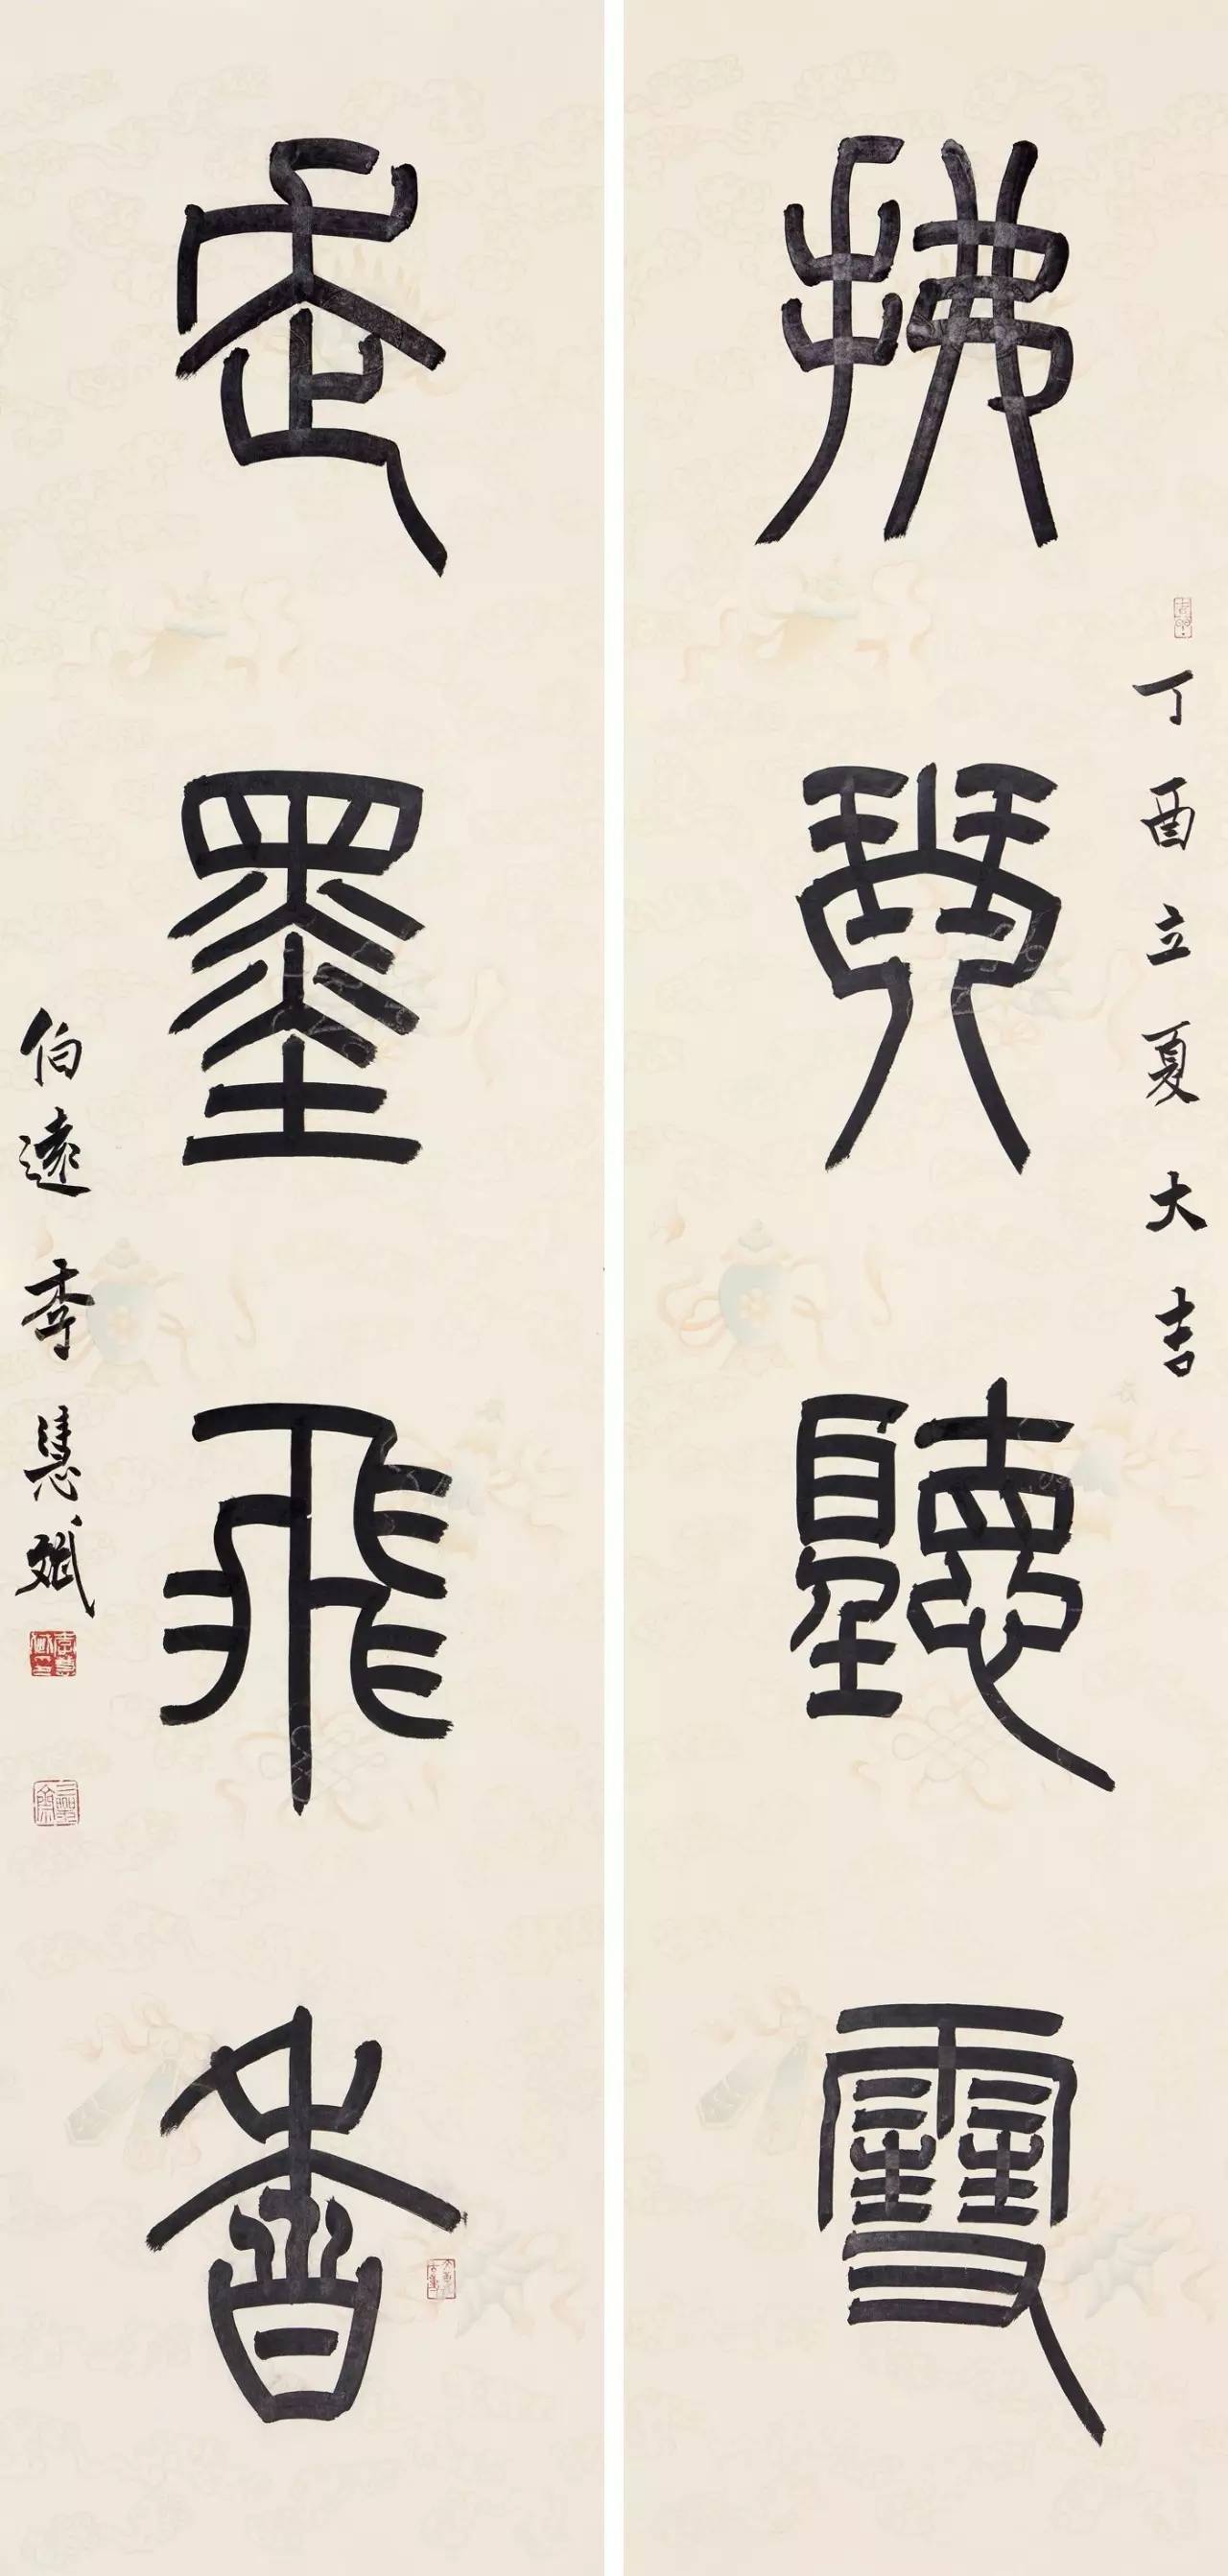 丁酉立夏大吉
拂琴聽雪
走墨飛香
伯遠李慧斌